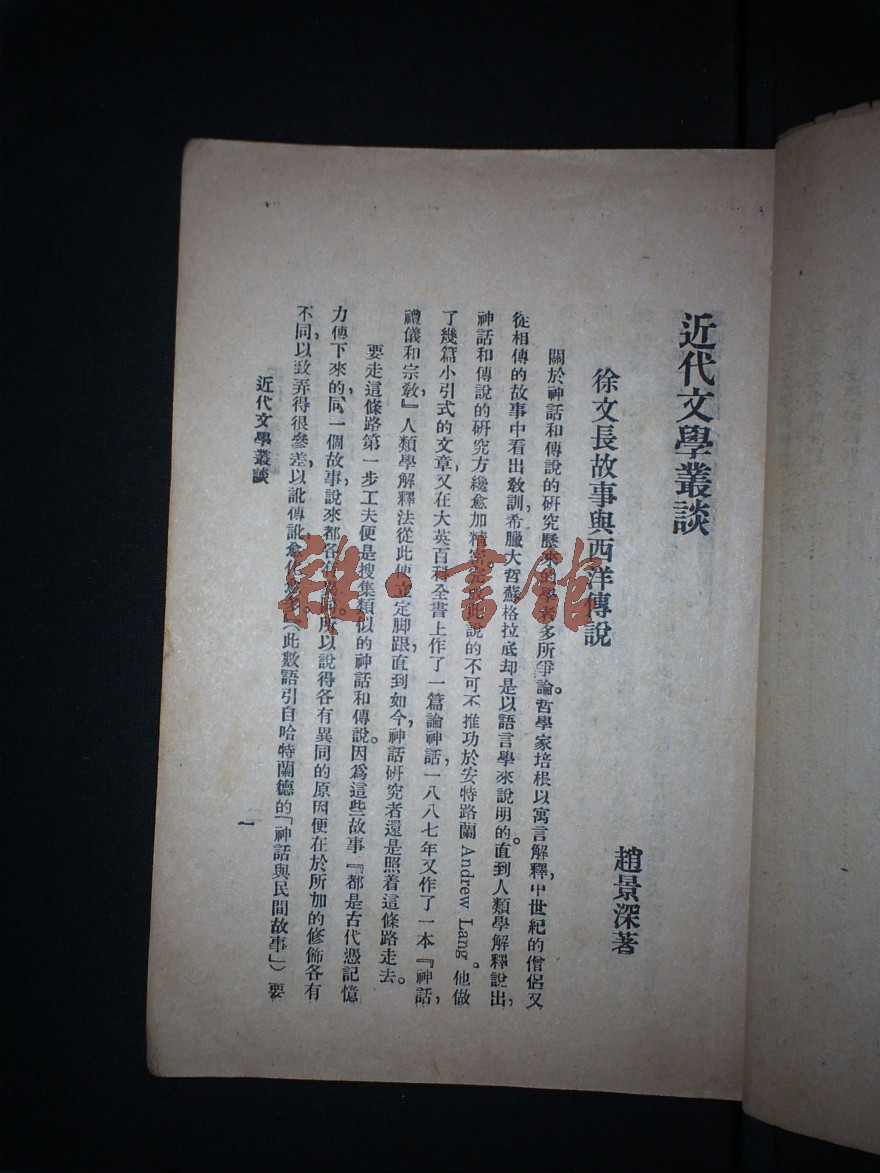 近代文學叢談
徐文長故事與西洋傳說
趙景深著
關於神話和傳說的研究歷來的學者多所爭論。哲學家培根以寓言解釋，中世紀的僧侶又
從相傳的故事中看出教訓，希臘大哲蘇格拉底却是以語言學來說明的。直到人類學解釋說出，
神話和傳說的研究方纔愈加精密。完成此說的不可不推功於安特路蘭 Andrew Lang。他做
了幾篇小引式的文章，又在大英百科全書上作了一篇論神話，一八八七年又作了一本『神話，
禮儀和宗教』，人類學解釋法從此便立定脚跟，直到如今，神話研究者還是照着這條路走去。
要走這條路第一步工夫便是搜集類似的神話和傳說。因爲這些故事『都是古代憑記憶
力傳下來的，同一個故事說來都各各異，所以說得各有異同的原因便在於所加的修飾各有
不同，以致弄得很參差，以訛傳訛愈化愈多』（此數語引自哈特蘭德的「神話與民間故事」）要
近代文學叢談
一
雜·書館